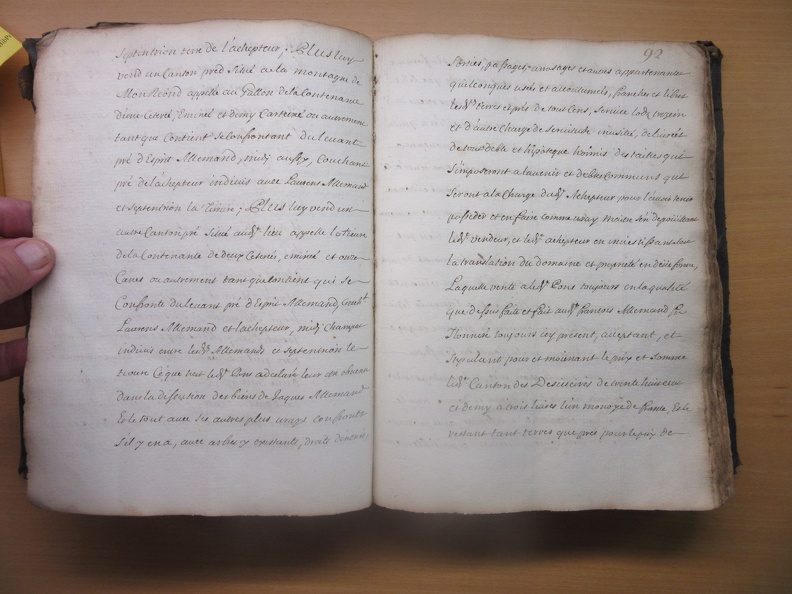 Septentrion terre de l'achepteur; Plus luy
vend un Canton pred Situé a la montagne de
appellé au de la Contenance
d'une et demy ou autrement
tant que Contient Se Confrontant du levant
pré d'Esprit Allemand, midy aussy, Couchant
pré de l'achepteur indivis avec Laurens Allemand
et septentrion la ; Plus luy vend un
autre Canton pré Situé audt lieu appellé
de la Contenante de deux et onze
Canes ou autrement tant que Contient qui se
Confronte du levant pré d'Esprit Allemand, Coucht
Laurens Allemand et lachepteur, midy Champs
indivis entre lesds Allemands et septentrion le
Ce que ledt Pons a
Dans la discution des biens de Jaques Allemand
Et le tout avec ses autres plus vrays confronts
S'il y en a, avec arbres y existants, droits
92
Sorties, passages, usages et autres appartenances
quelconques usités et acoutumés, franches et libres
lesds terres et prés de tous Cens, Service lods trezein
et d'autre Charge de Servitude inusitée, de
de tous debte et hipoteque hormis des tailles qui
S'imposeront a l'avenir et debtes Communs qui
Seront a la Charge dudt Achepteur pour l'avoir tenir
posseder et en faire comme vray maitre S'en depouillant
ledt vendeur, et ledt achepteur en investissant avec
la translation du domaine et proprieté en deüe forme,
Laquelle vente a ledt Pons toujours en la qualité
que dessus faite et fait audt françois Allemand, fu
toujours icy present, aceptant, et
Stipulant pour et moienant le prix et Somme
ledt Canton des de trente huit ecus
et demy a trois livres l'un monoye de france, Et le
restant tant terres que prés pour le prix de